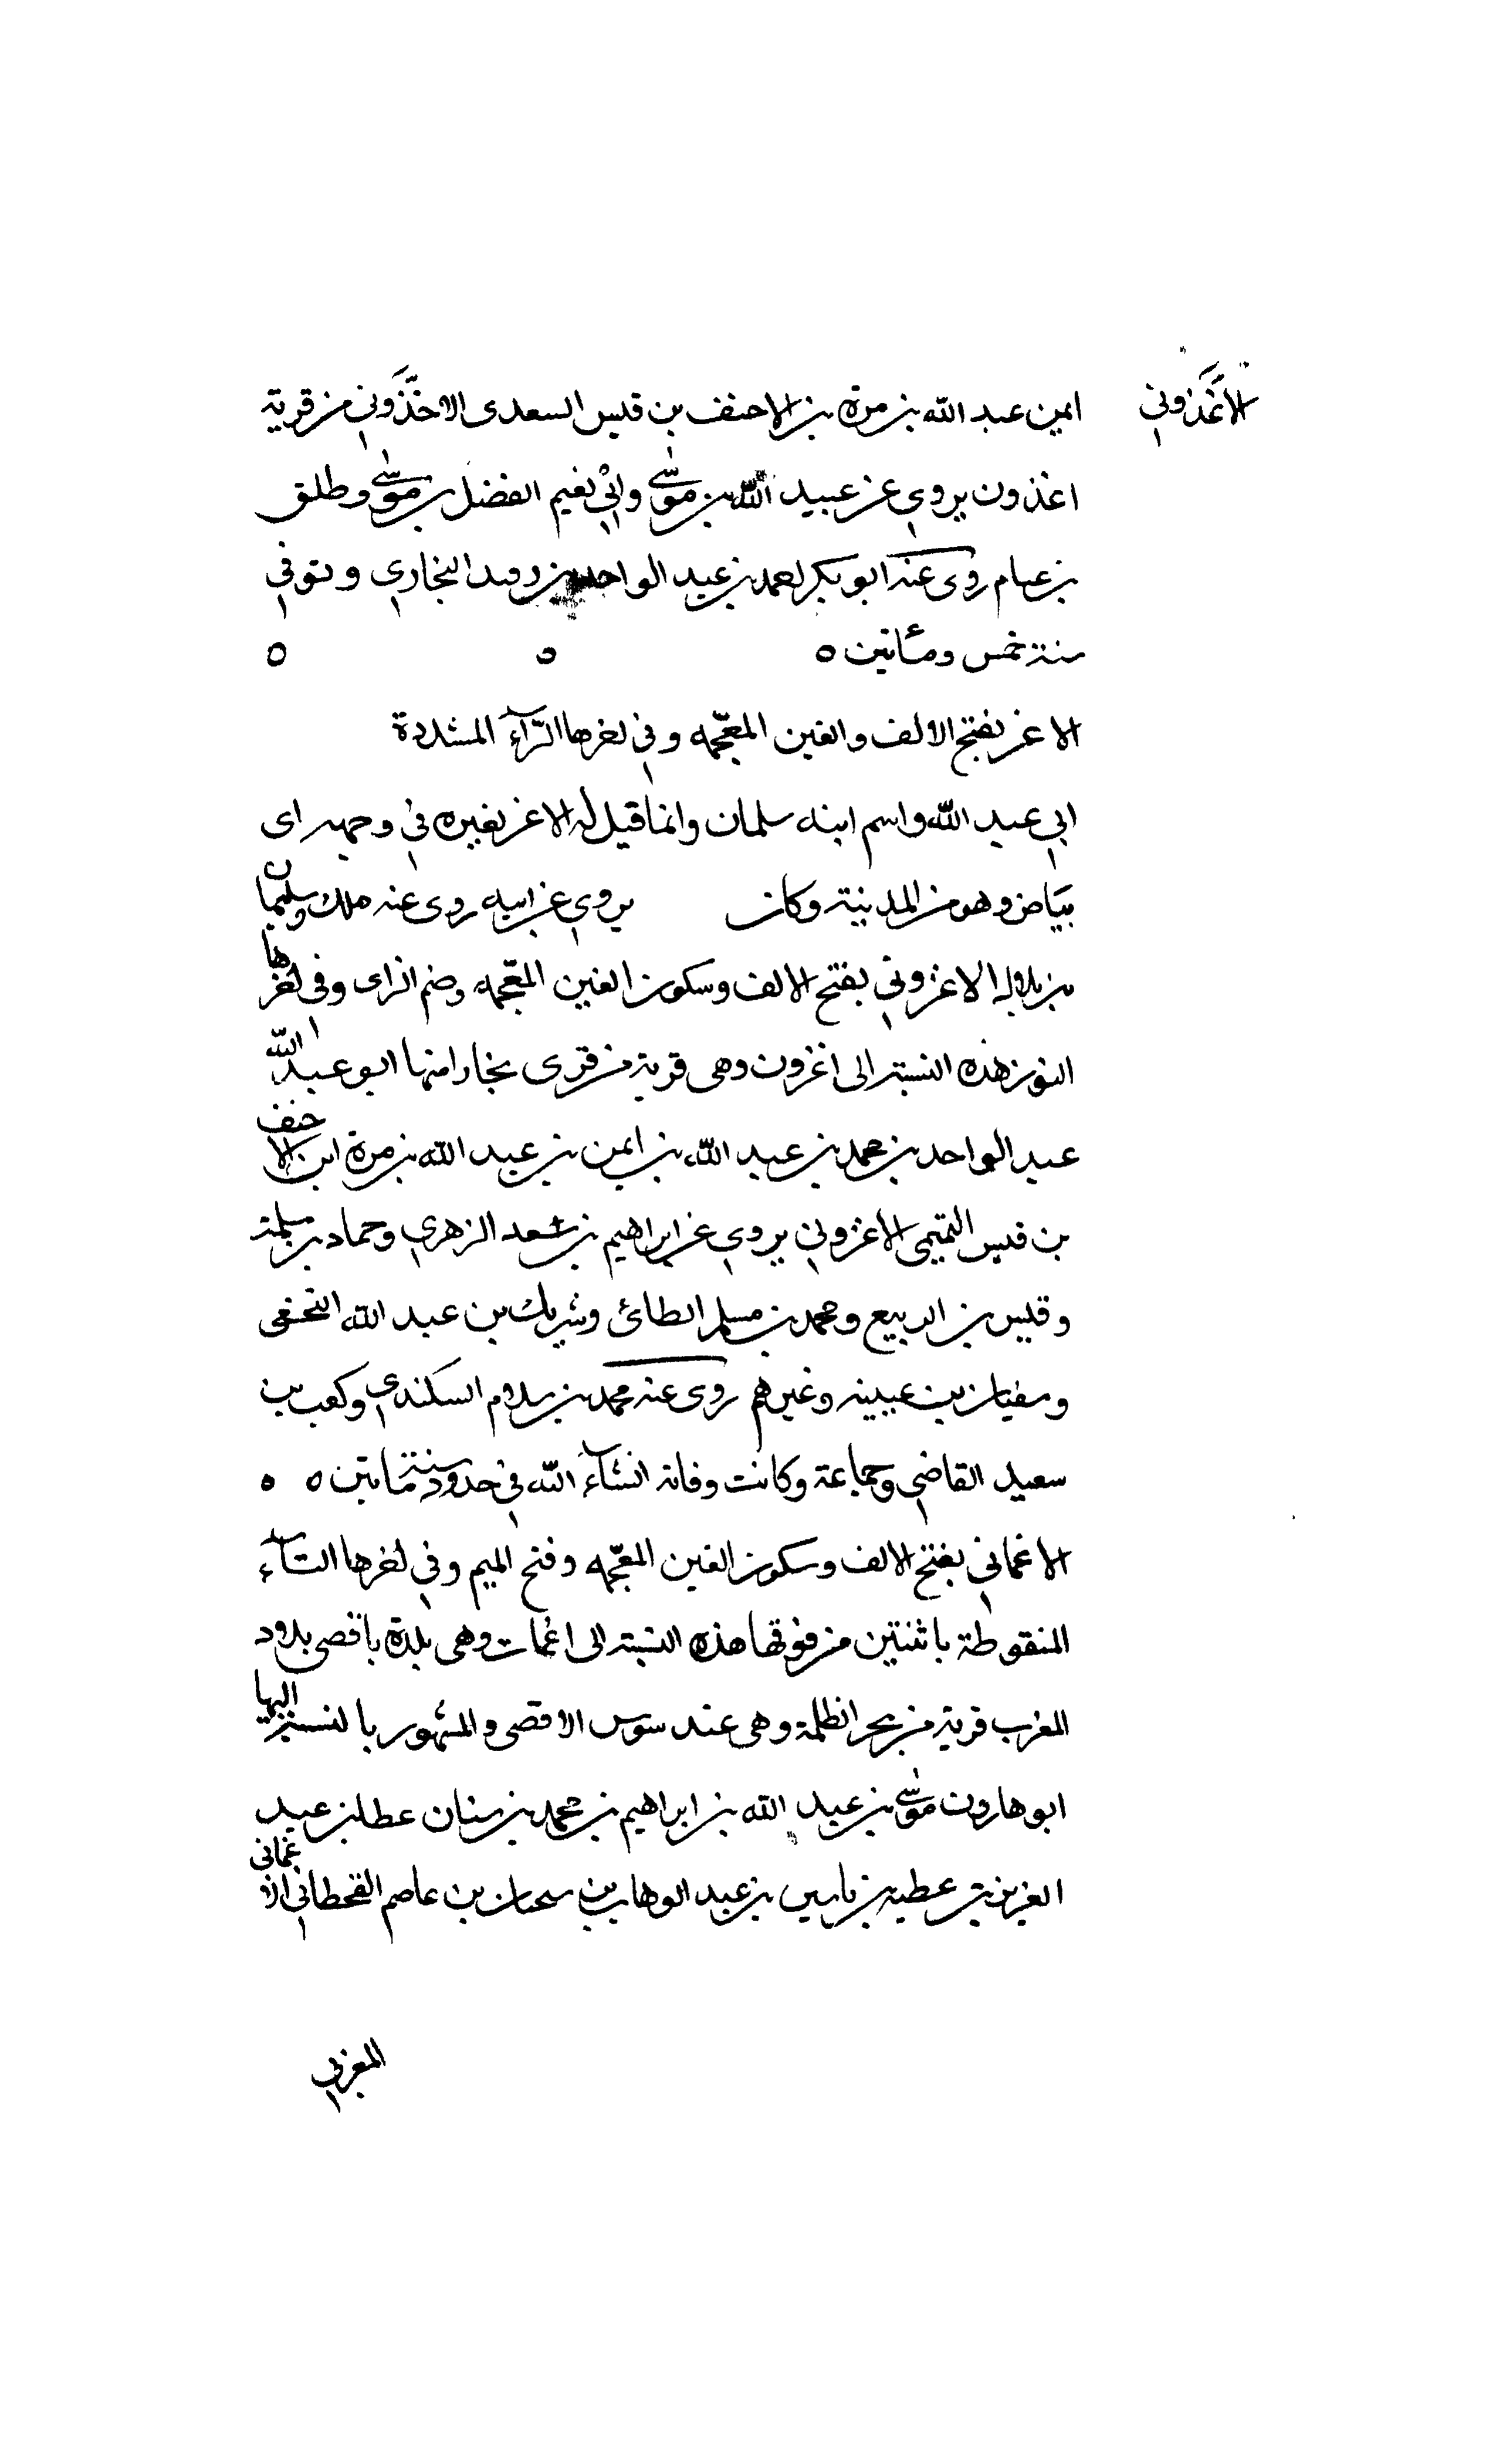 الاغذوني
ايمن عبد الله بن مرة بن الاحنف بن قيس السعدى الاخذوني من قرية
اغذون يروي عن عبيد الله بن موسى وابي نعيم الفضل بن موسى وطلق
بن عمام روى عنه ابو بكر محمد بن عبد الواحد بن رفيد البخاري وتوفي
سنة خمس ومئاتين ه ه ه
الاغر بفتح الالف والغين المعجمه وفي اخرها الرآء المشددة
ابي عبد الله واسم ابنه سلمان وانما قيل له الاغر لغيره في وجهه اى
بياض وهو من المدينة وكان يروي عن ابيه روى عنه ملك وسليمان
بن بلال الاغزوني بفتح الالف وسكون الغين المعجمه وضم الزاى وفي اخرها
النون هذه النسبة الى اغزون وهى قرية من قرى بخارا منها ابو عبد الله
عبد الواحد بن محمد بن عبد الله بن ايمن بن عبد الله بن مرة ابن الاحنف
بن قيس التميمى الاغزوني يروي عن ابراهيم بن سعد الزهري وحماد بن سلمة
وقيس بن الربيع ومحمد بن مسلم الطائى وشريك بن عبد الله النخعى
وسفيان بن عيينه وغيرهم روى عنه محمد بن سلام السكندي وكعب بن
سعيد القاضي وجماعة وكانت وفاته انشآء الله في حدود سنة مايتين ه ه
الاغماتي بفتح الالف وسكون الغين المعجمه وفتح الميم وفي اخرها التآء
المنقوطة باثنتين من فوقها هذه النسبة الى اغمات وهى بلدة باقصى بلاد
المغرب قرية من بحر الظلمة وهى عند سوس الاقصى والمشهور بالنسبة اليها
ابو هارون موسى بن عبد الله بن ابراهيم بن محمد بن سنان عطا بن عبد
العزيز بن عطيه بن ياسين بن عبد الوهاب بن سحنان بن عاصم القحطاني الاغماتي
المغربي